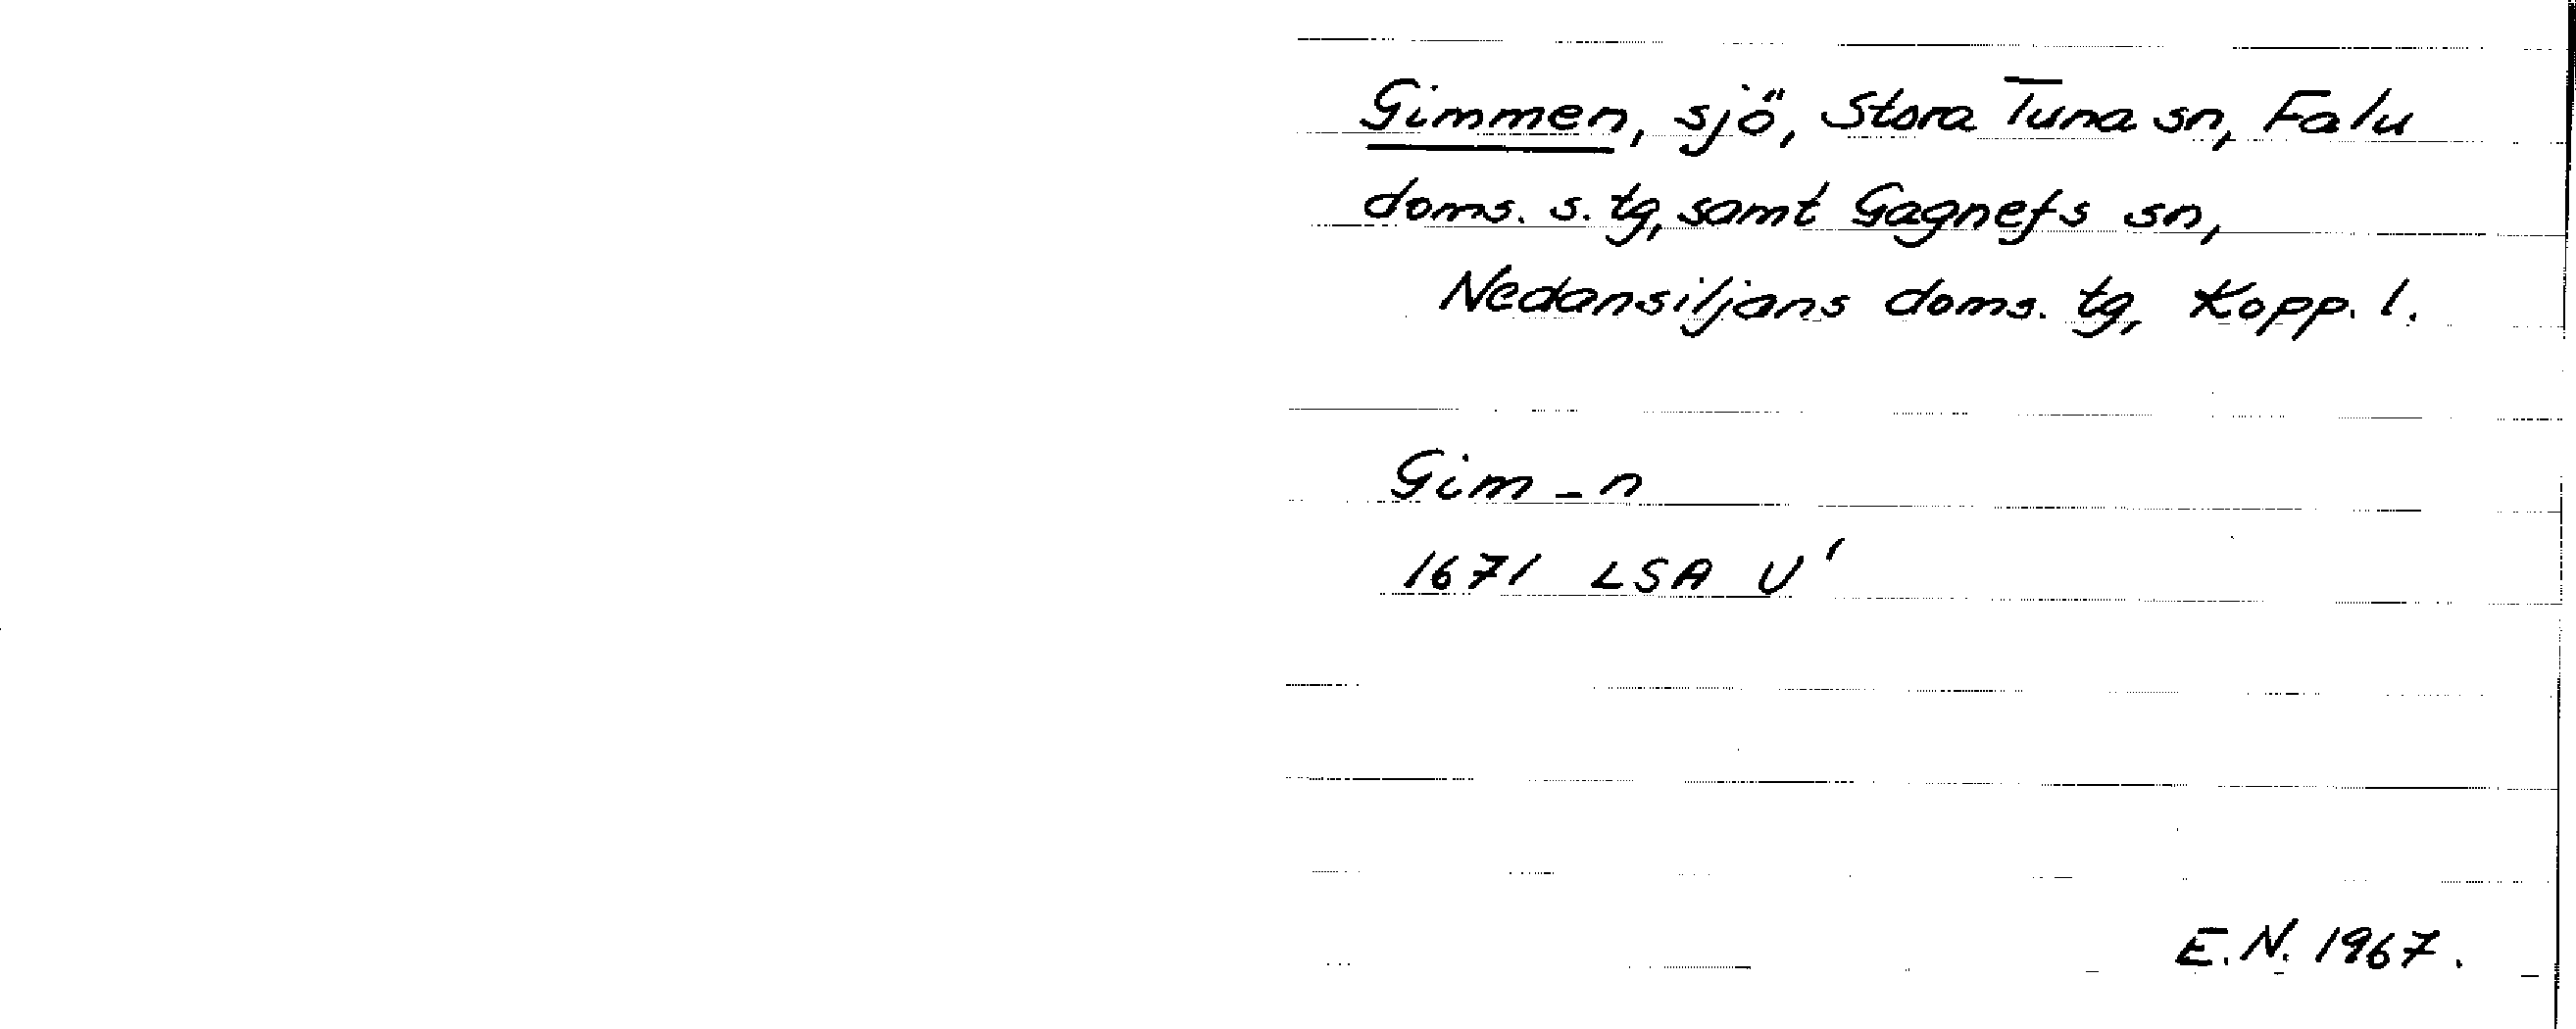 Gimmen, sjö, Stora Tuna sn, Falu
doms. s. tg, samt Gagnefs sn,
Nedansiljans doms. tg, Kopp. l.
Gim - n
1671 LSA U'
E.N. 1967.